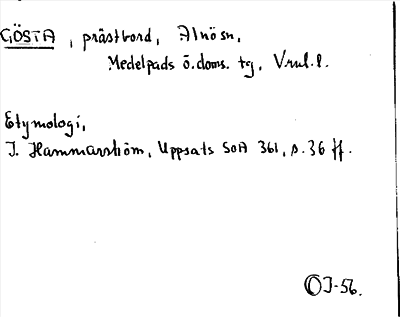 GÖSTA, prästbord, Alnö sn,
Medelpads ö. doms. tg, Vnl. l.
Etymologi,
I. Hammarström, Uppsats SOA 361, s. 36 ff.
OJ-56.